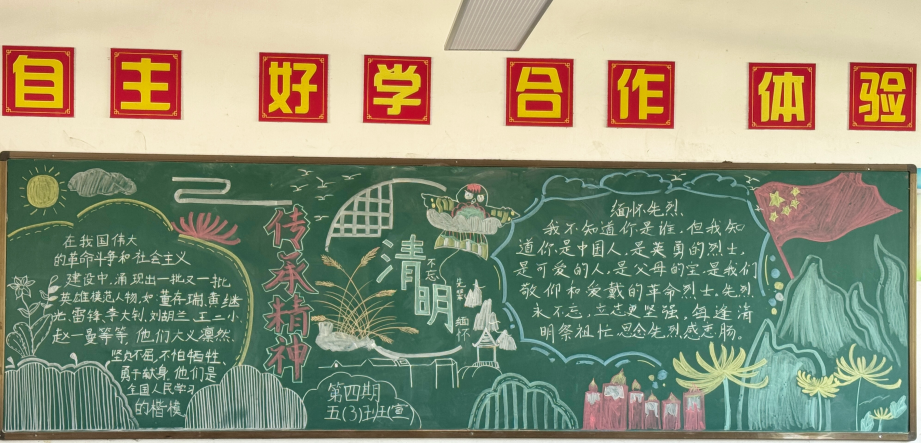 自主 好学 合作 体验
在我国伟大
的革命斗争和社会主义
建设中,涌现出一批又一批
英雄模范人物,如董存瑞,黄继
光,雷锋,李大钊,刘胡兰,王二小,
赵一曼等等,他们大义凛然,
坚贞不屈,不怕牺牲,
勇于献身,他们是
全国人民学习
的楷模
传承精神
清明
不忘
缅怀
第四期
五(3)班
缅怀先烈
我不知道你是谁,但我知
道你是中国人,是英勇的烈士,
是可爱的人,是父母的宝,是我们
敬仰和爱戴的革命烈士,先烈
永不忘,立志更坚强,每逢清
明祭祖忙,思念先烈感衷肠。